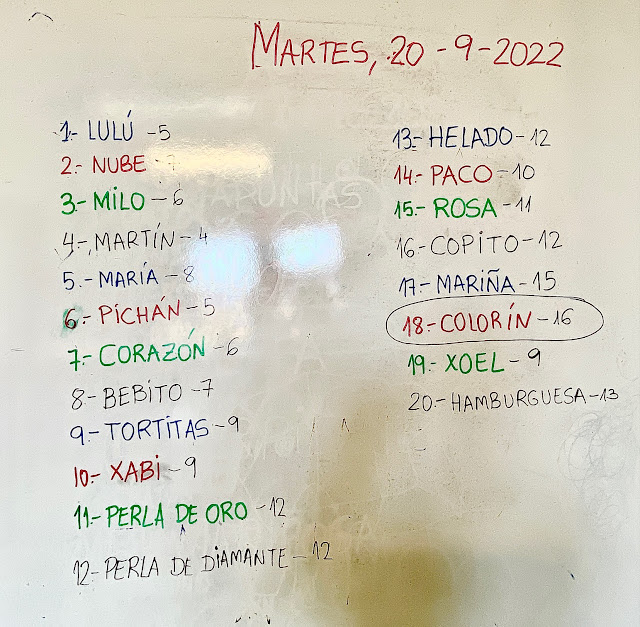 MARTES, 20-9-2022
1.- LULÚ - 5
2.- NUBE - 7
3.- MILO - 6
4.- MARTÍN - 4
5.- MARÍA - 8
6.- PICHÁN - 5
7.- CORAZÓN - 6
8.- BEBITO - 7
9.- TORTITAS - 9
10.- XABI - 9
11.- PERLA DE ORO - 12
12.- PERLA DE DIAMANTE - 12
13.- HELADO - 12
14.- PACO - 10
15.- ROSA - 11
16.- COPITO - 12
17.- MARIÑA - 15
18.- COLORÍN - 16
19.- XOEL - 9
20.- HAMBURGUESA - 13
APUNTAS